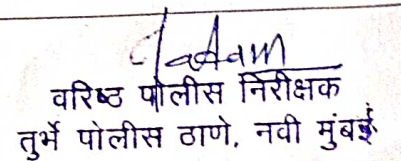 वरिष्ठ पोलीस निरीक्षक
तुर्भे पोलीस ठाणे, नवी मुंबई